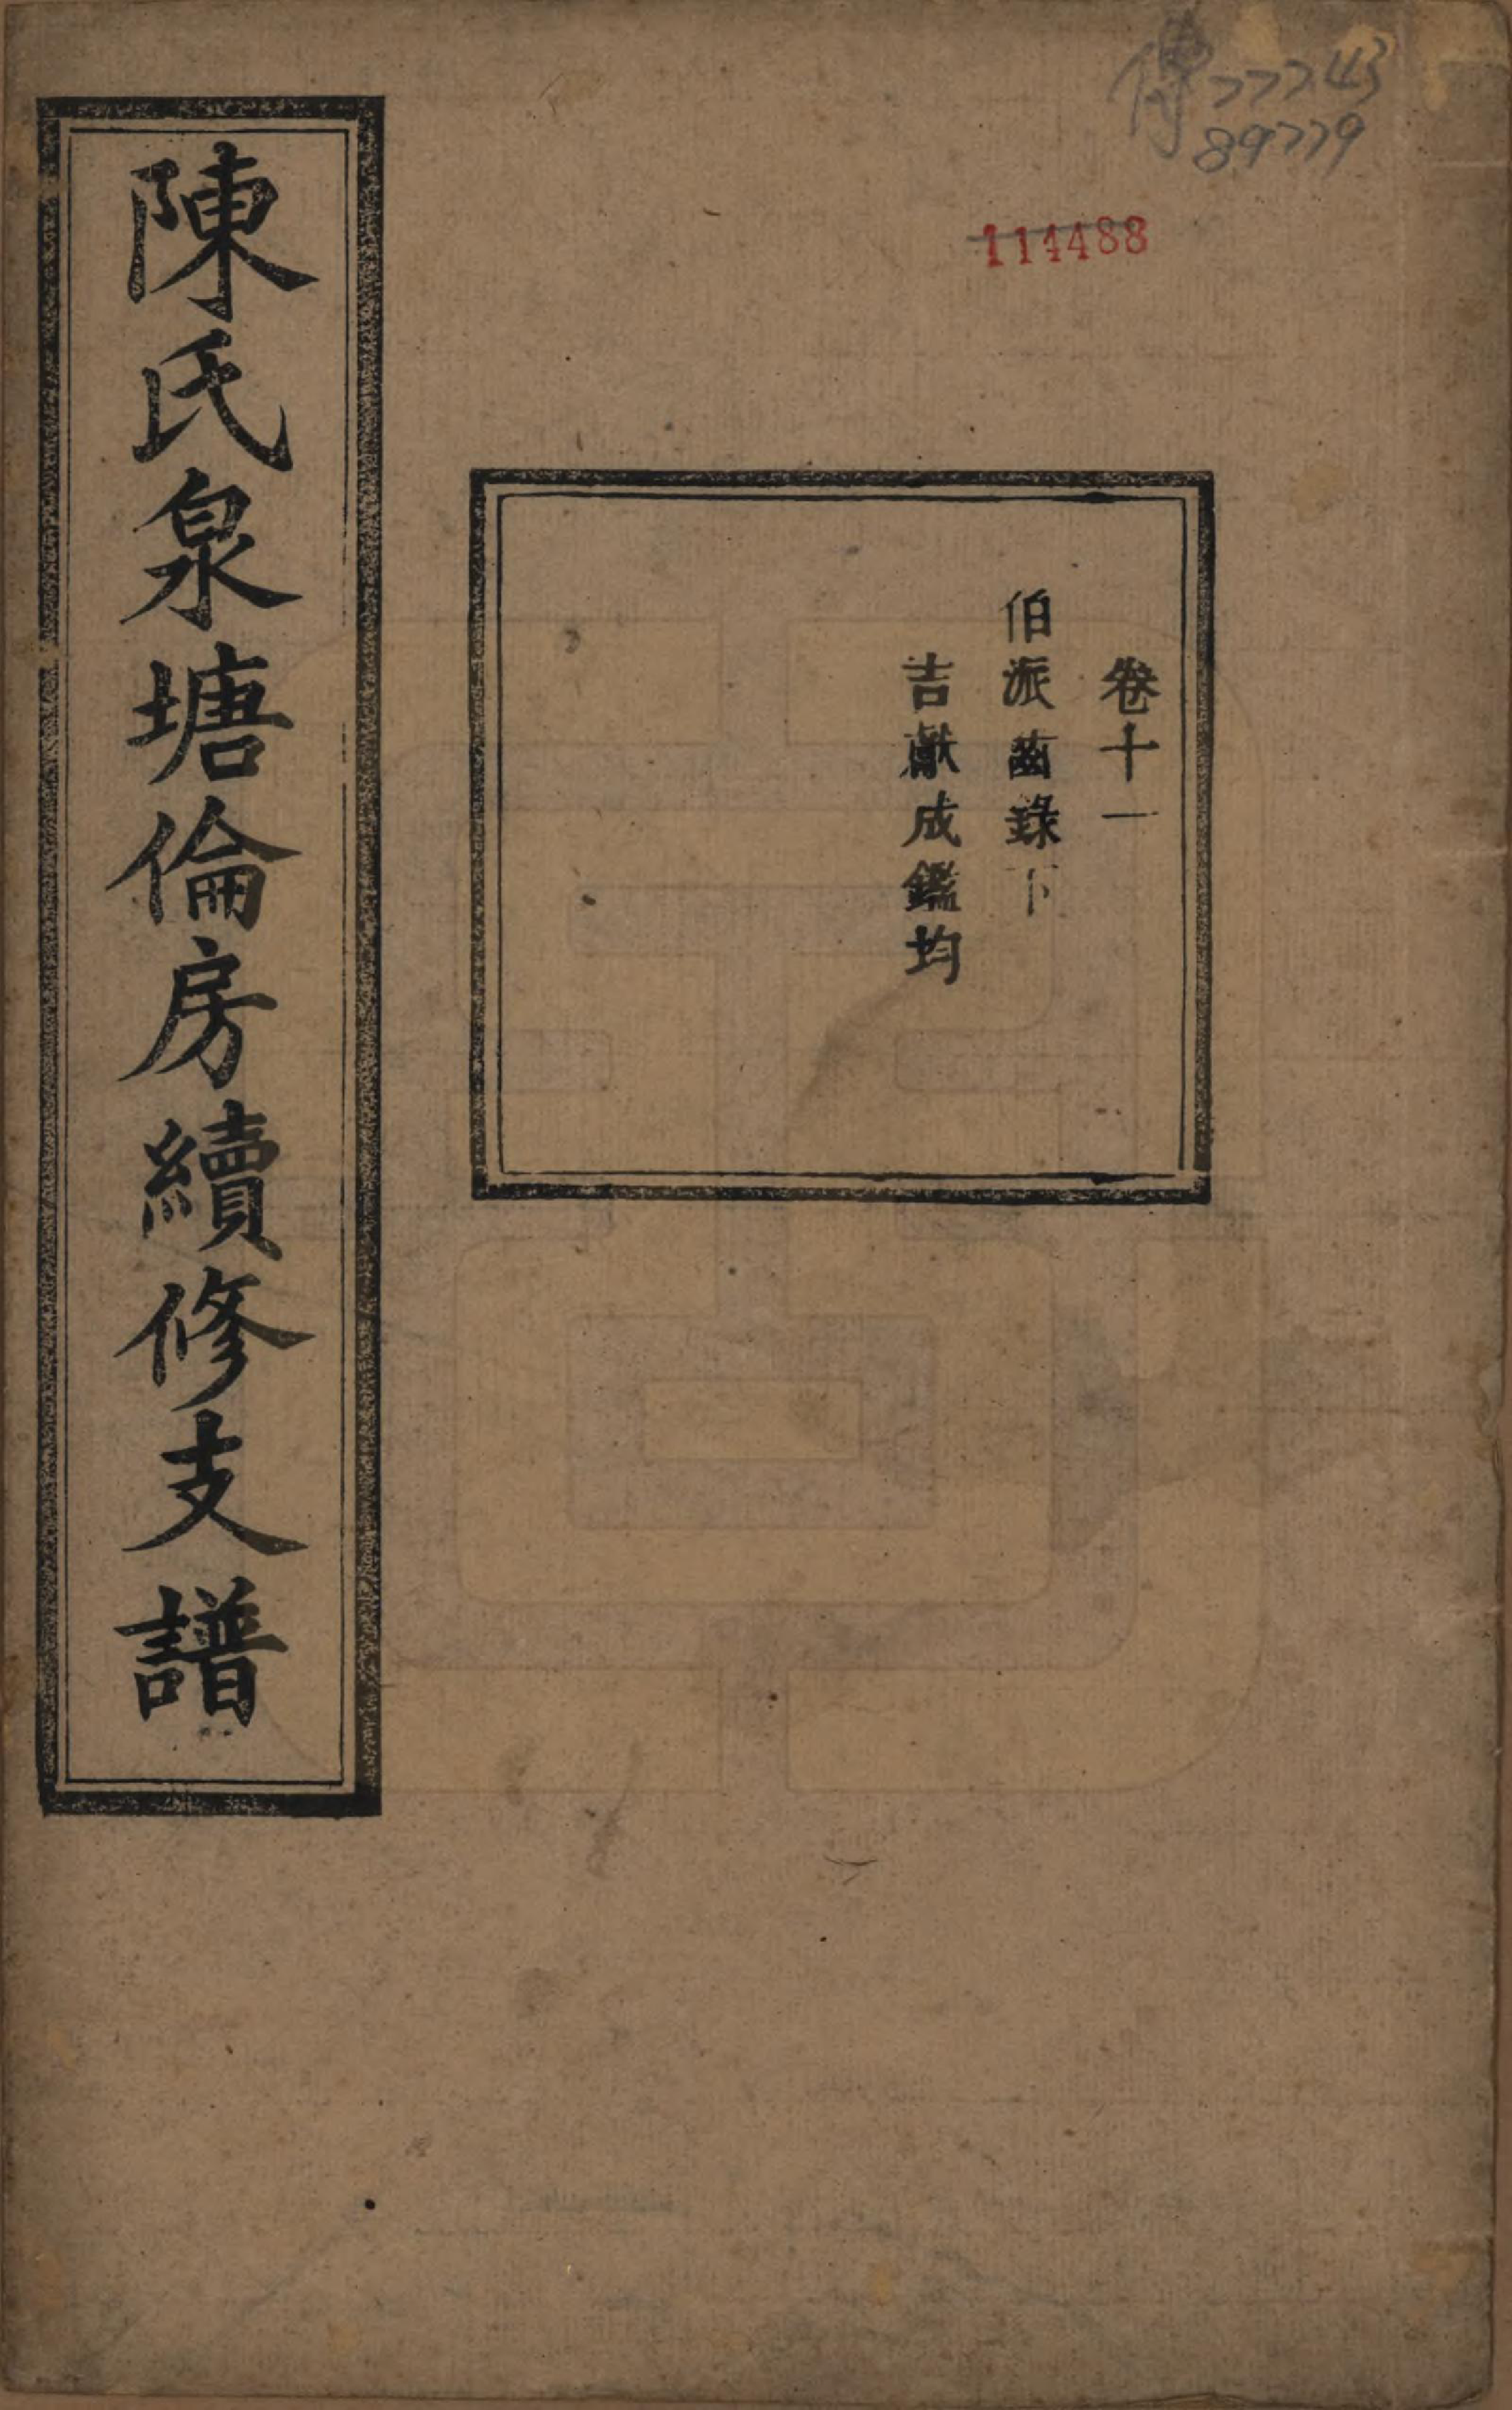 傅 77743
89779
114488
卷十一
伯派齒錄下
吉獻成鑑均
陳氏泉塘倫房續修支譜